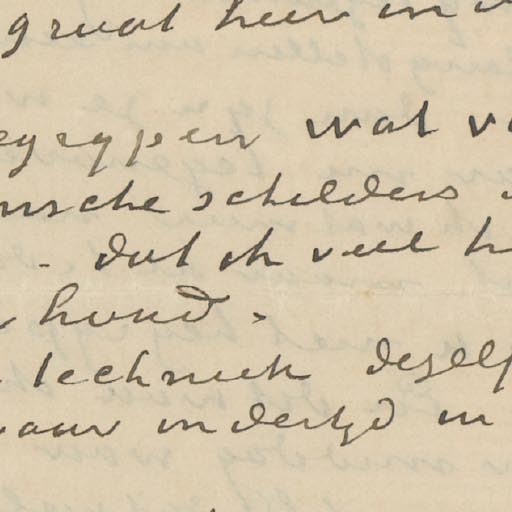 groot heer in
egrypen wat v
nsche schilders
- dat ik veel h
houd.
techniek dezelf
waar indertyd in